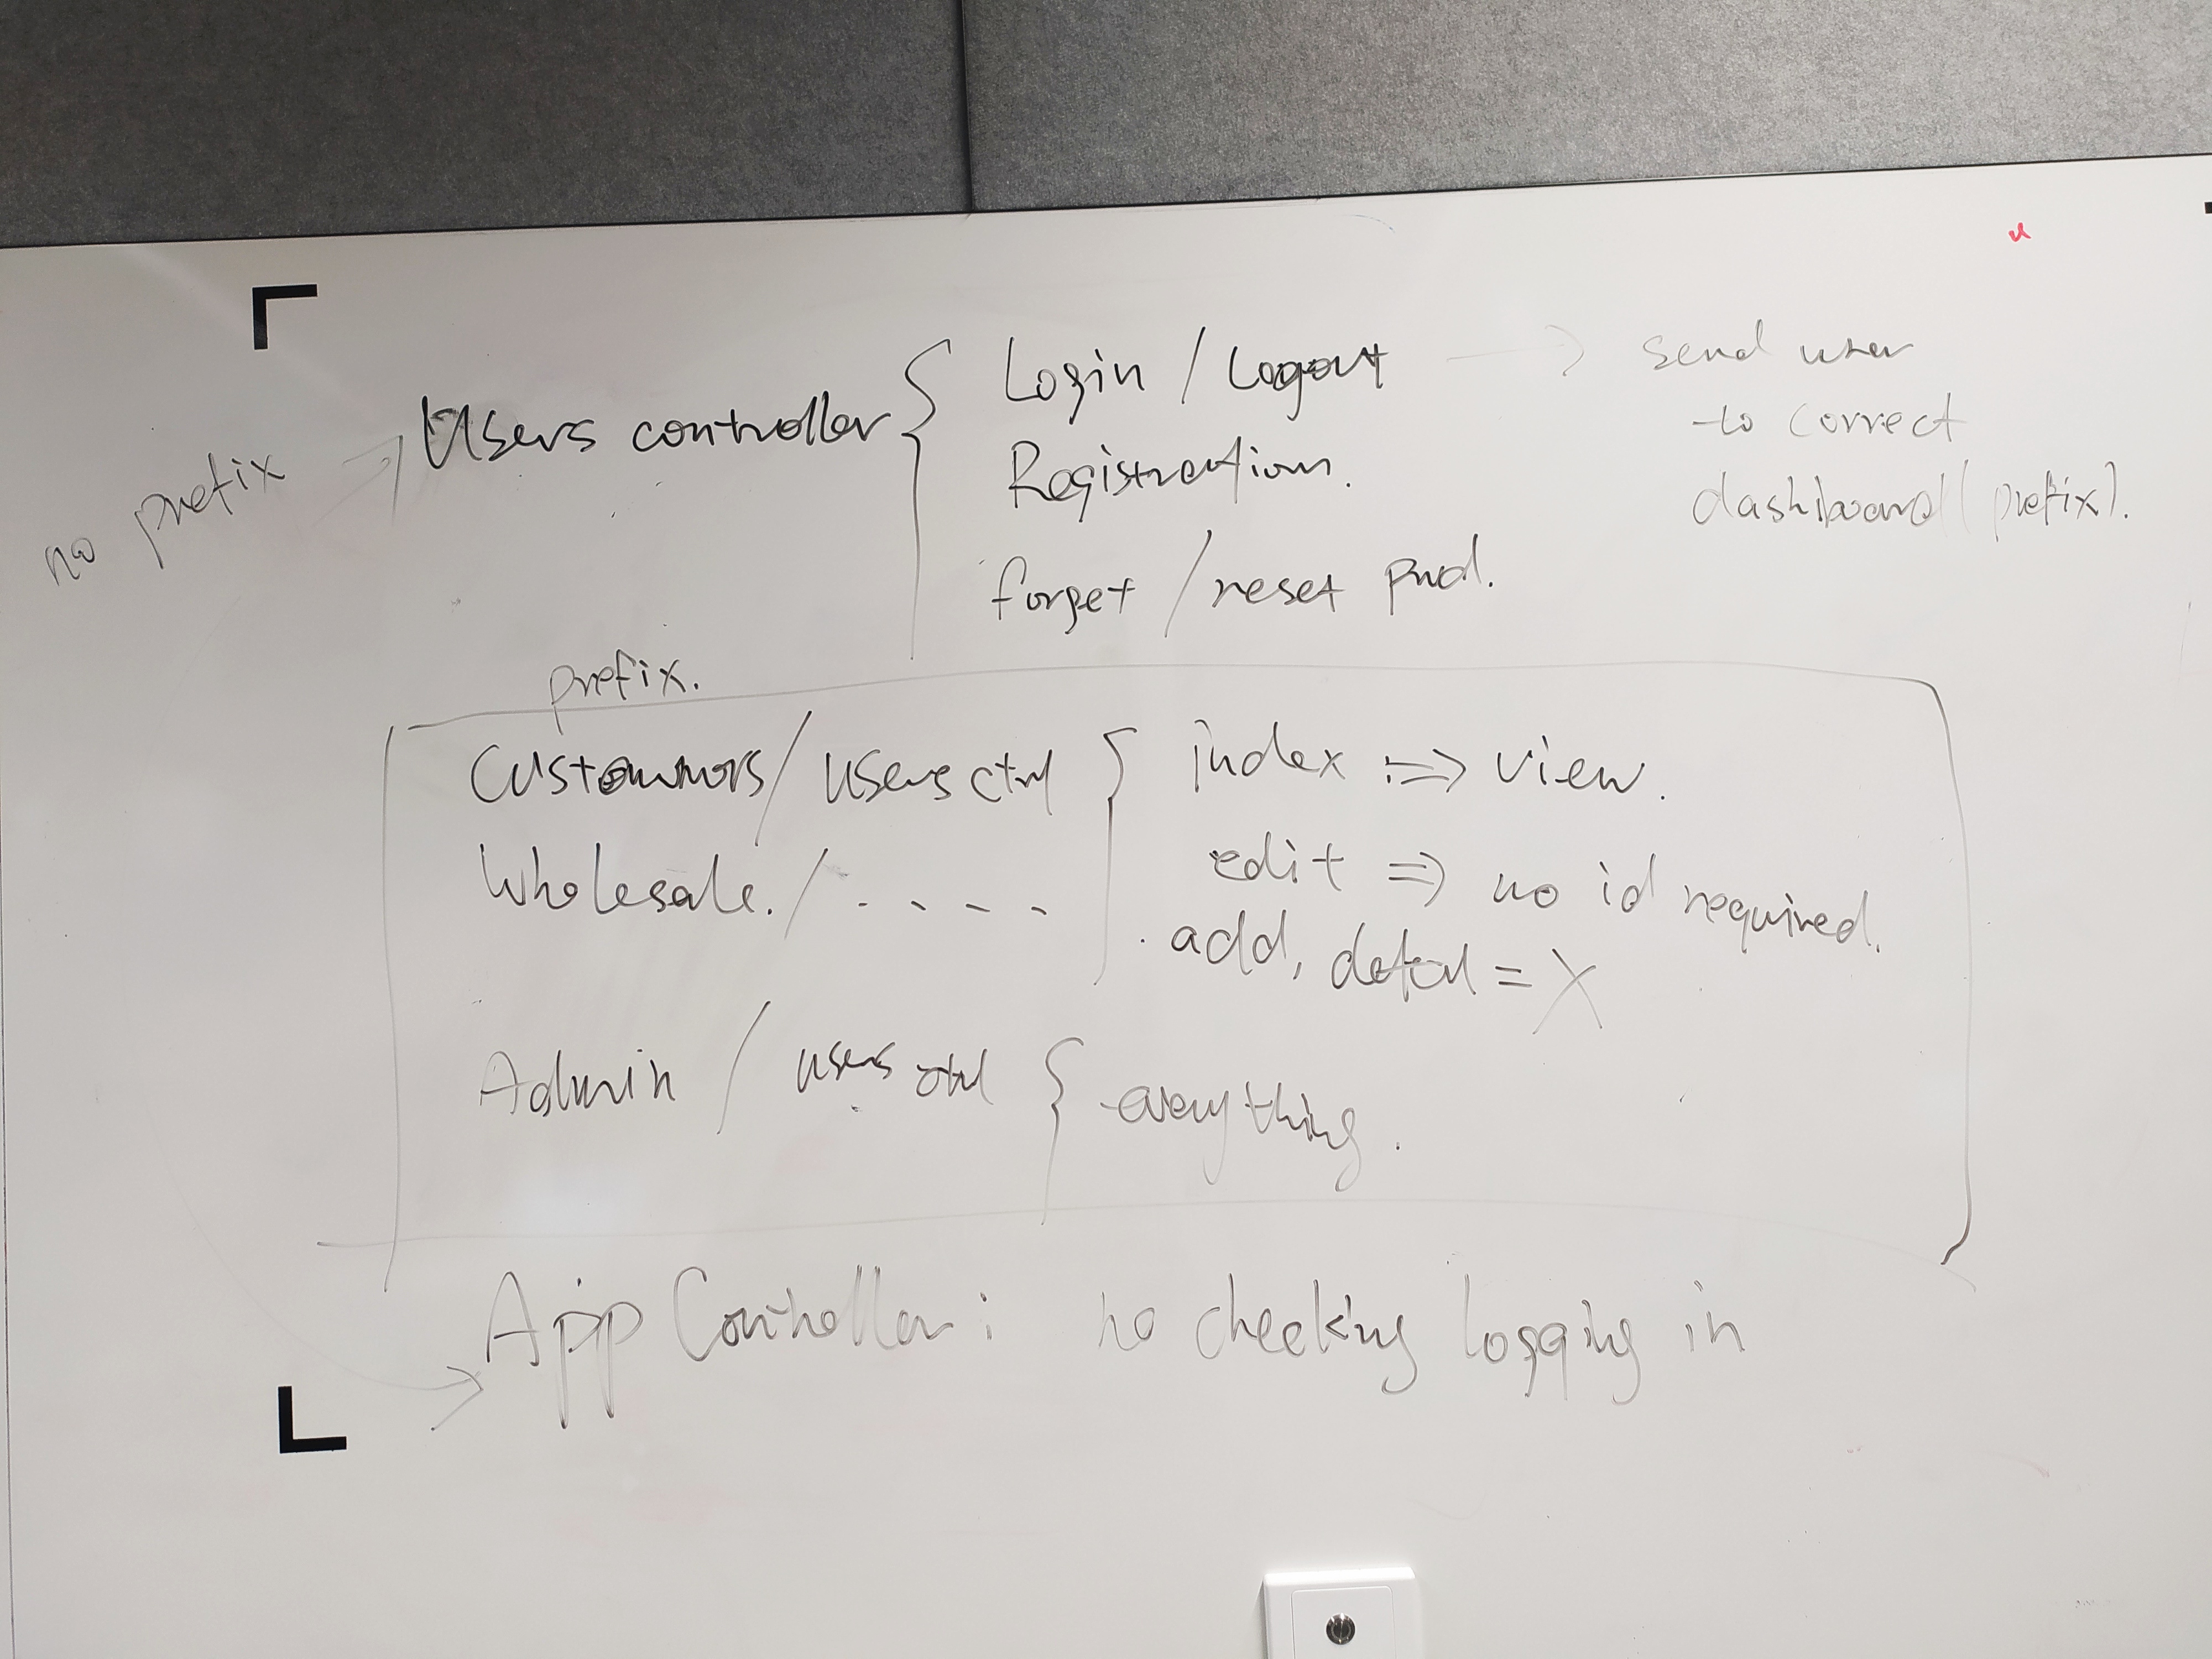 no prefix
Users controller { Login / Logout → send user
to correct
dashboard (prefix).
Registration.
forget / reset pwd.
prefix.
Customors / users ctrl } index => view.
Wholesale. / . - - -
edit => no id required.
add, = X
Admin / users ctrl { everything.
App Controller : no checking logging in